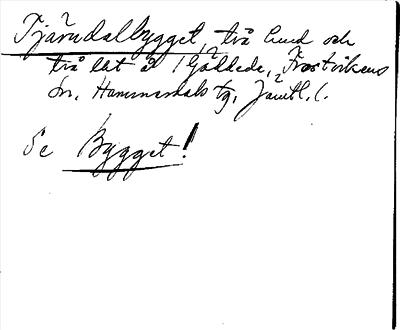 Tjärndalbygget, två hund och
två lät å 1 Gäddede, Frostvikens
sn, Hammerdals tg, Jämtl. l.
Se Bygget!